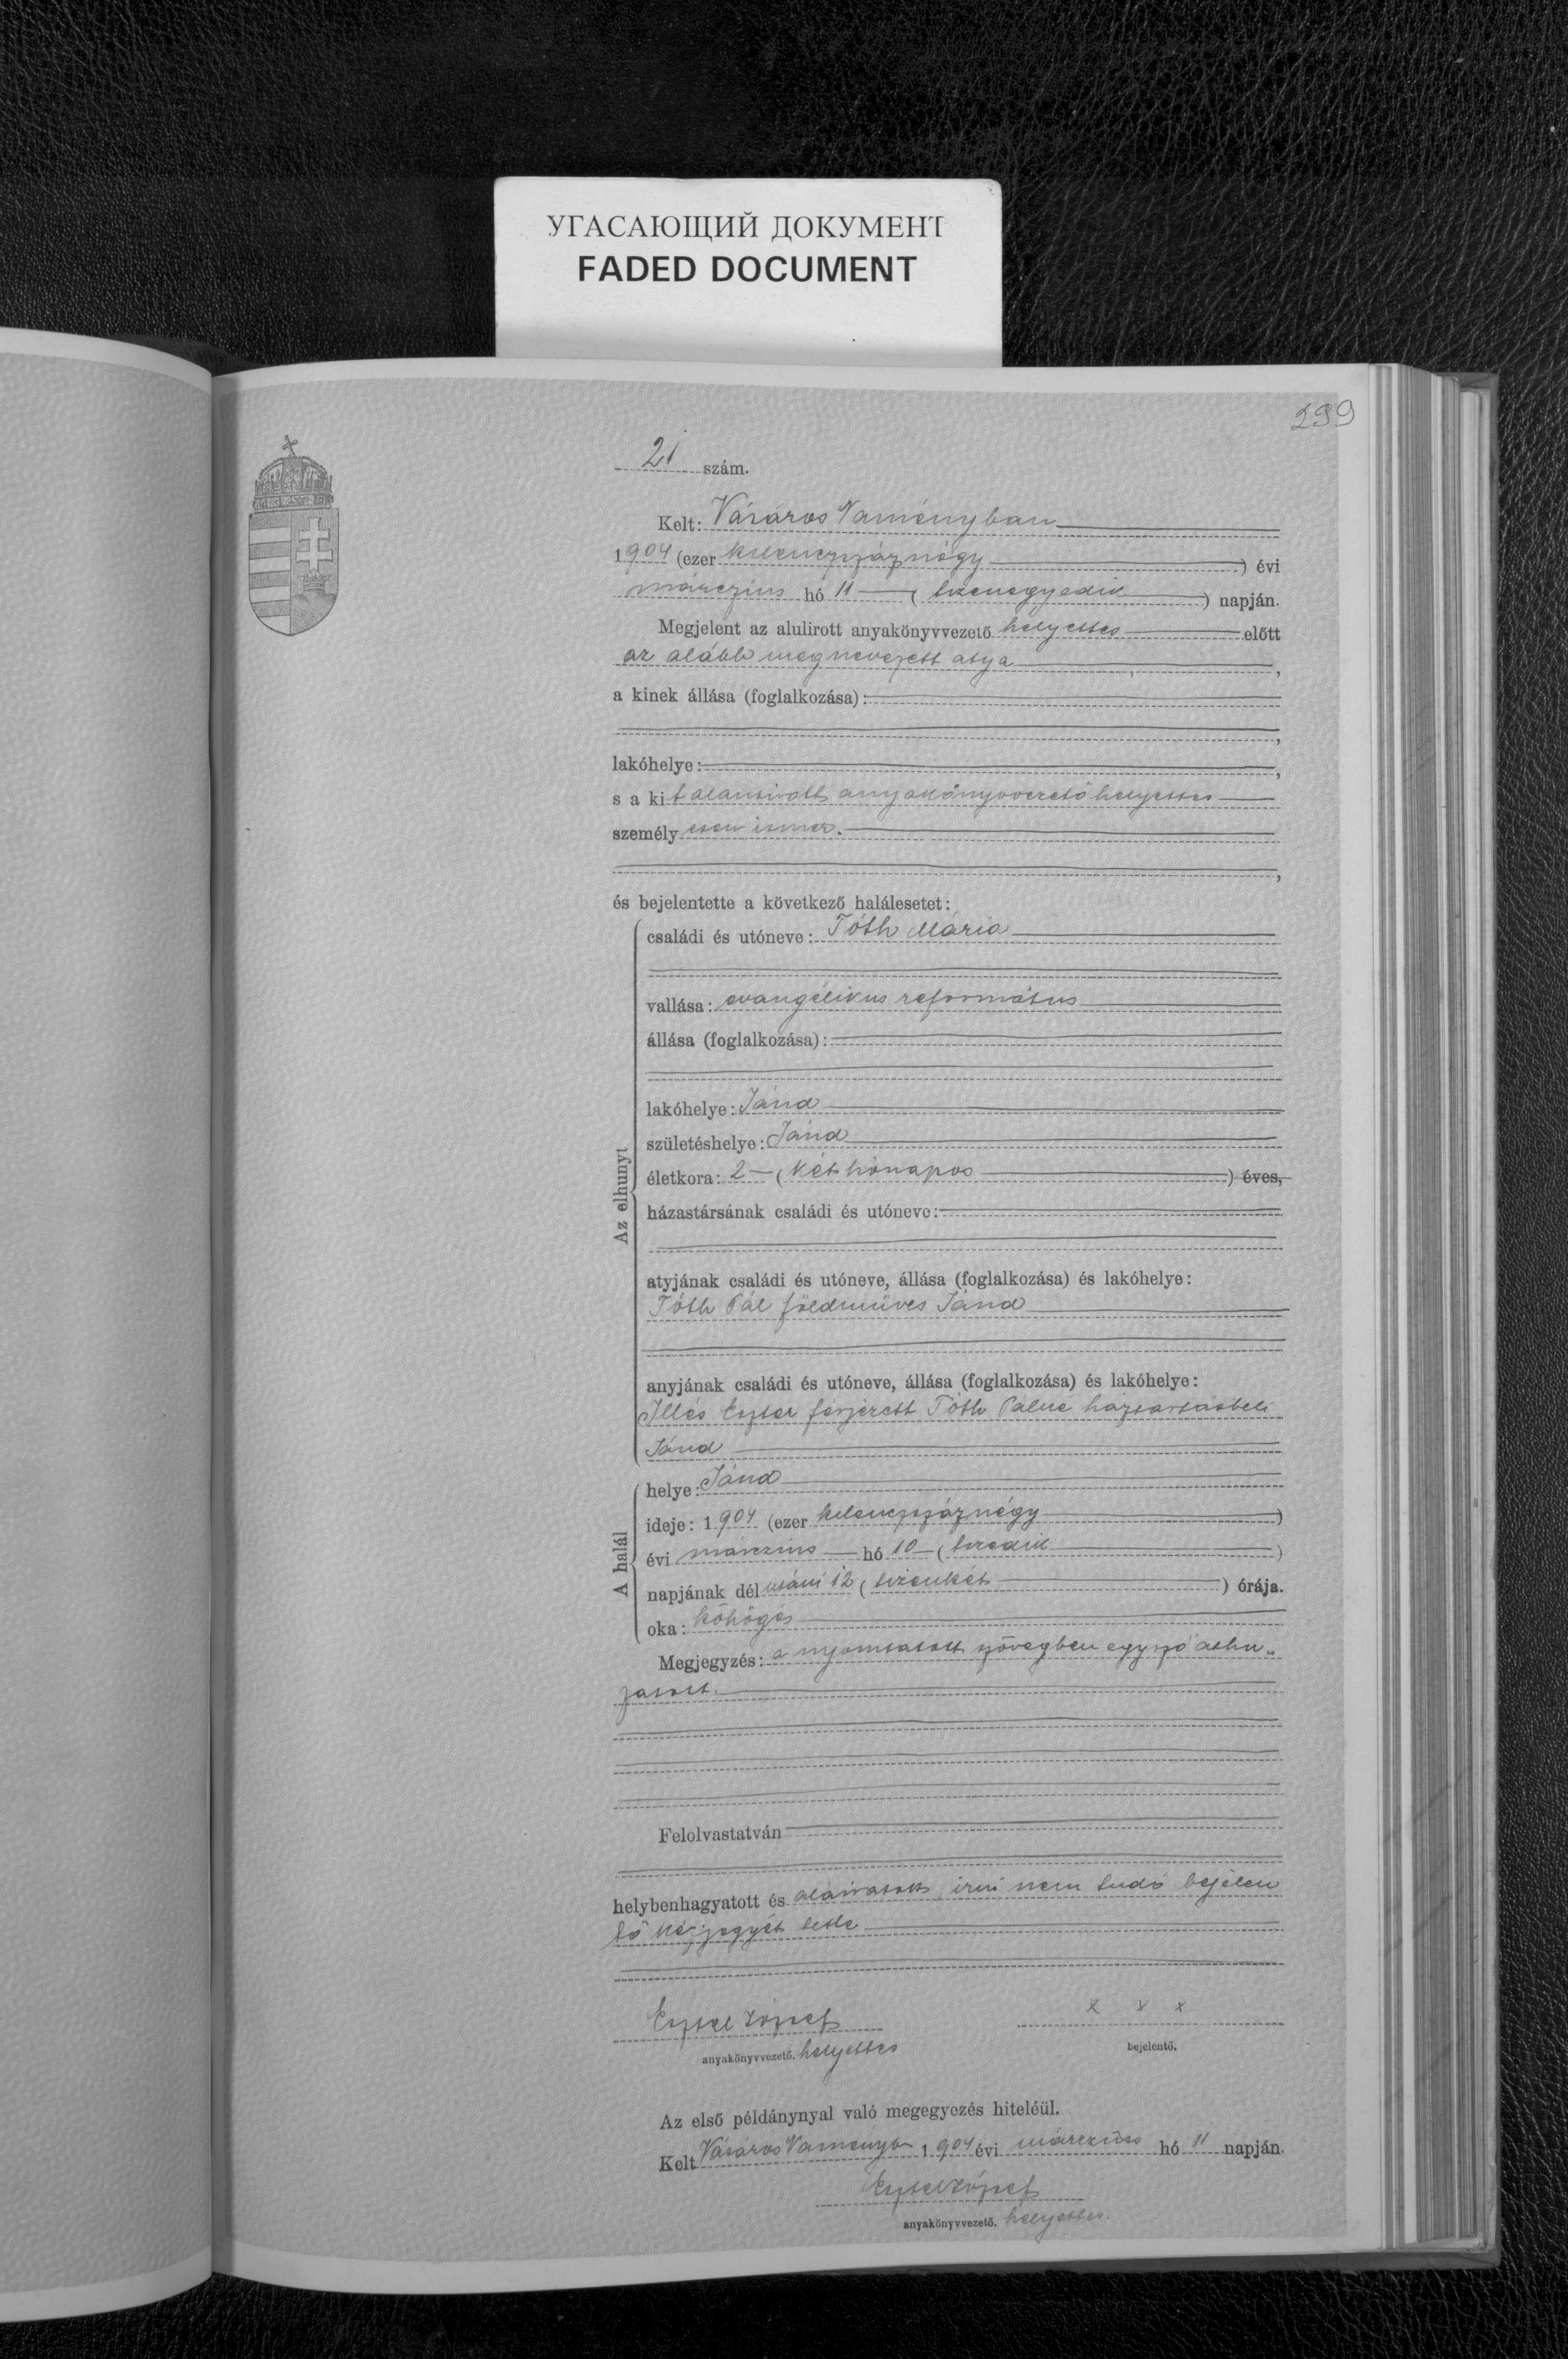 УГАСАЮЩИЙ ДОКУМЕНТ
FADED DOCUMENT
299
21 szám.
Kelt: Vásáros Naményban
1904 (ezer kilenczszáznégy) évi
márczius hó 11 (tizenegyedik) napján.
Megjelent az alulirott anyakönyvvezető helyettes előtt
az alább megnevezett atya,
a kinek állása (foglalkozása):
,
lakóhelye: ,
s a kit alantirott anyakönyvvezető helyettes
személyesen ismer.
,
és bejelentette a következő halálesetet:
Az elhunyt
családi és utóneve: Tóth Mária
vallása: evangélikus református
állása (foglalkozása):
lakóhelye: Jánd
születéshelye: Jánd
életkora: 2 (két hónapos) éves,
házastársának családi és utóneve:
atyjának családi és utóneve, állása (foglalkozása) és lakóhelye:
Tóth Pál földmüves Jánd
anyjának családi és utóneve, állása (foglalkozása) és lakóhelye:
Illés Eszter férjezett Tóth Pálné háztartásbeli
Jánd
A halál
helye: Jánd
ideje: 1904 (ezer kilenczszáznégy)
évi márczius hó 10 (tizedik)
napjának délutáni 12 (tizenkét) órája.
oka: köhögés
Megjegyzés: a nyomtatott szövegben egy szó áthu„
zatott.
Felolvastatván
helybenhagyatott és aláiratott, irni nem tudó bejelen
tő kézjegyét tette
x x x
anyakönyvvezető. helyettes
bejelentő.
Az első példánynyal való megegyezés hiteléül.
Kelt Vásáros Naményb 1904 évi márczius hó 11 napján.
anyakönyvvezető. helyettes.